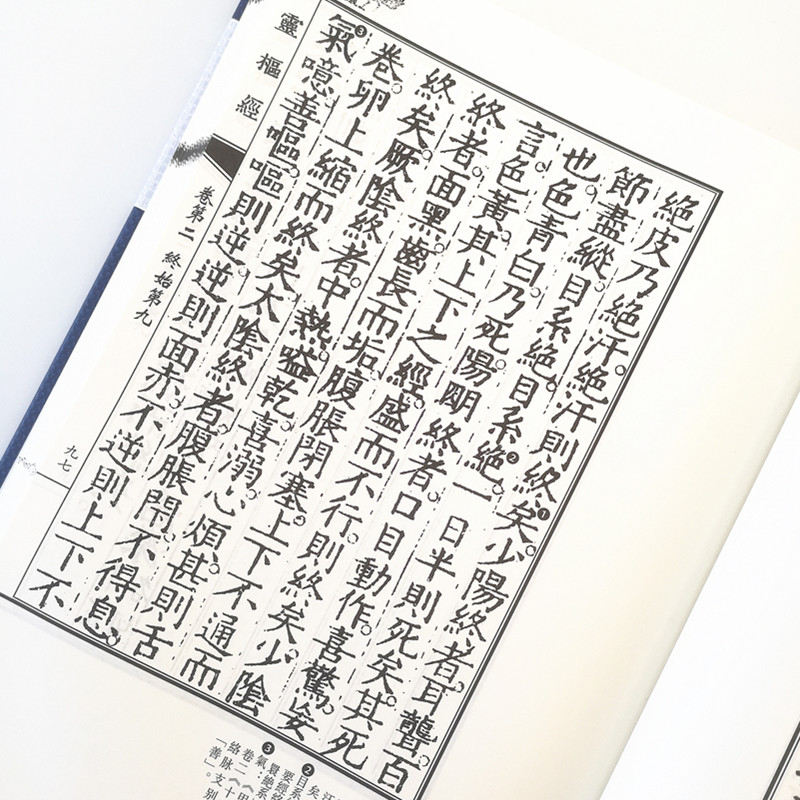 絕皮乃絕汗。絕汗則終矣。❶少陽終者。耳聾。百
節盡縱。目系絕。目系❷絕。一日半則死矣。其死
也。色青白。乃死。陽眀終者。口目動作。喜驚。妄
言。色黃。其上下之經。盛而不行。則終矣。少陰
終者。面黑。齒長而垢。腹脹閉塞。上下不通而
終矣。厥陰終者。中熱。嗌乾。喜溺。心煩。甚則舌
卷。卵上縮而終矣。太陰終者。腹脹閉。不得息。
氣❸噫。善嘔。嘔則逆。逆則面赤。不逆則上下不
靈樞經
卷第二 終始第九
九七